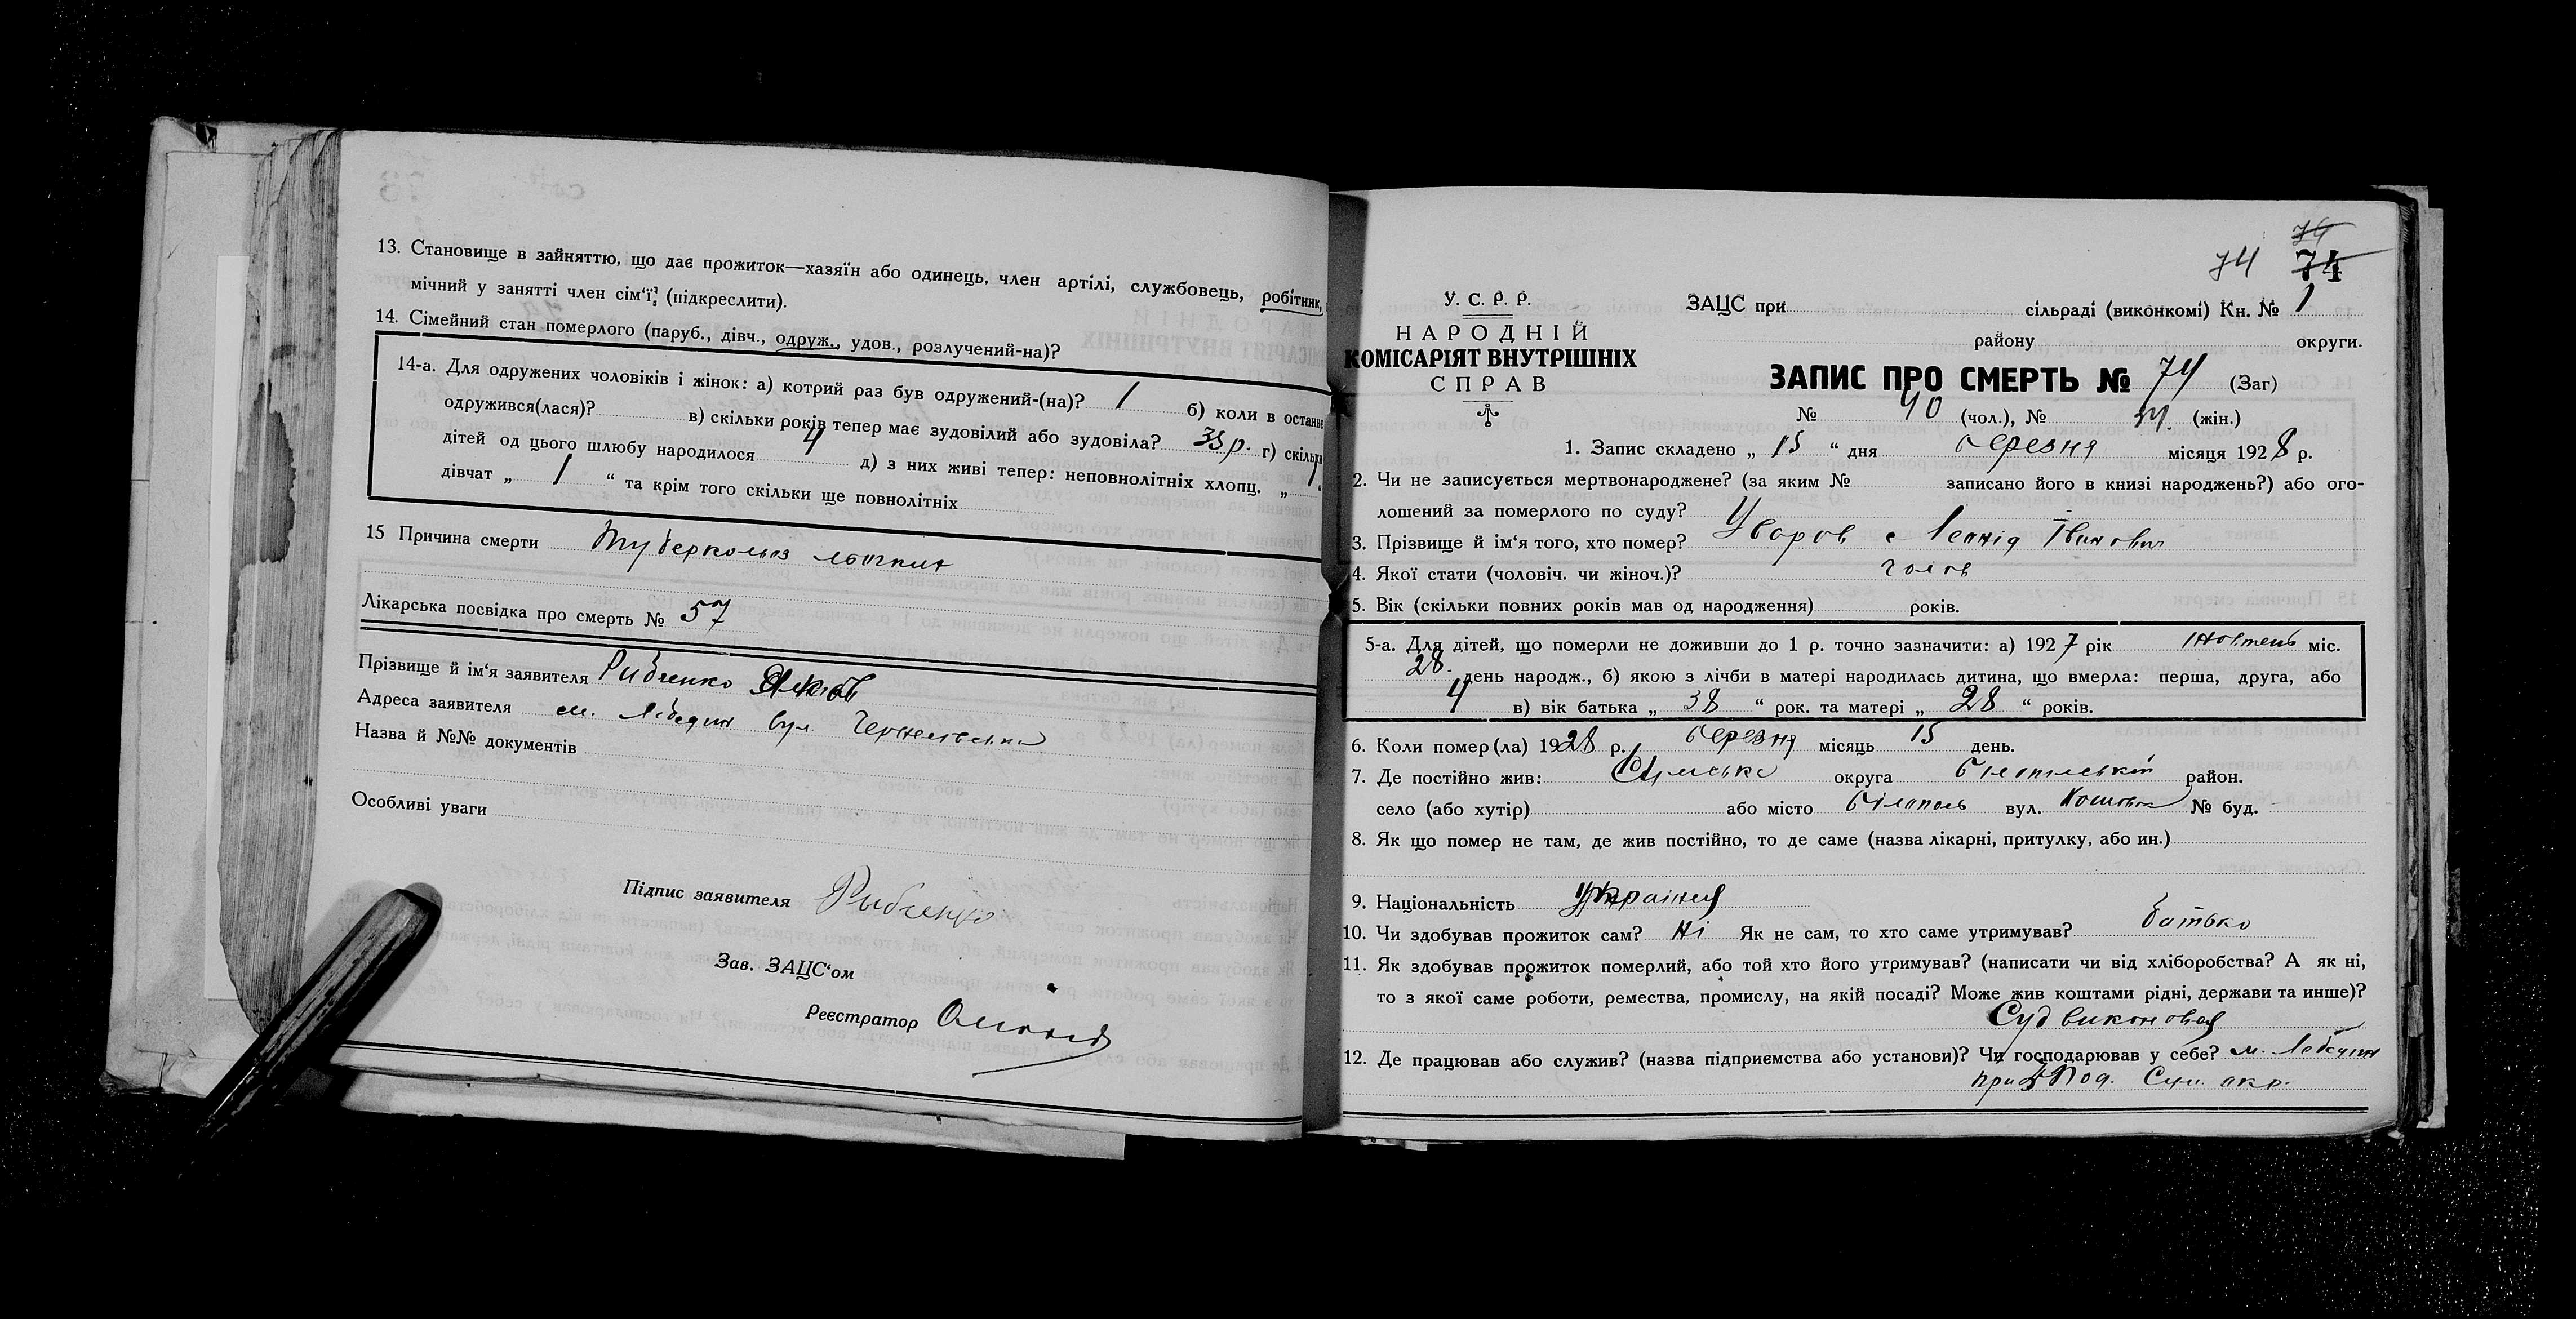 13. Становище в зайняттю, що дає прожиток—хазяїн або одинець, член артілі, службовець, робітник,
мічний у занятті член сім'ї, (підкреслити).
14. Сімейний стан померлого (паруб., дівч., одруж., удов., розлучений-на)?
14-а. Для одружених чоловіків і жінок: а) котрий раз був одружений-(на)? 1 б) коли в останнє
одружився(лася)? в) скільки років тепер має зудовілий або зудовіла? 33 р. г) скільки
дітей од цього шлюбу народилося 4 д) з них живі тепер: неповнолітніх хлопц. „ 1 “
дівчат „ 1 “ та крім того скільки ще повнолітніх
15 Причина смерти Туберкольоз льогких
Лікарська посвідка про смерть № 57
Прізвище й ім'я заявителя Рибченко Яків
Адреса заявителя м. Лебедин вул.
Назва й №№ документів
Особливі уваги
Підпис заявителя Рибченко
Зав. ЗАЦС'ом
Реєстратор
74 74
74
У. С. Р. Р.
НАРОДНІЙ
КОМІСАРІЯТ ВНУТРІШНІХ
СПРАВ
ЗАЦС при сільраді (виконкомі) Кн. № 1
району округи.
ЗАПИС ПРО СМЕРТЬ № 74 (Заг)
№ 40 (чол.), № 34 (жін.)
1. Запис складено „ 15 “ дня березня місяця 1928 р.
2. Чи не записується мертвонароджене? (за яким № записано його в книзі народжень?) або ого-
лошений за померлого по суду?
3. Прізвище й ім'я того, хто помер? Уваров Леонід Іванович
4. Якої стати (чоловіч. чи жіноч.)? чолов
5. Вік (скільки повних років мав од народження) років.
5-а. Для дітей, що померли не доживши до 1 р. точно зазначити: а) 1927 рік жовтень міс.
28. день народж., б) якою з лічби в матері народилась дитина, що вмерла: перша, друга, або
4 в) вік батька „ 38 “ рок. та матері „ 28 “ років.
6. Коли помер(ла) 1928 р. березня місяць 15 день.
7. Де постійно жив: Сумська округа Білопільський район.
село (або хутір) або місто Білопіль вул. № буд.
8. Як що помер не там, де жив постійно, то де саме (назва лікарні, притулку, або ин.)
9. Національність
10. Чи здобував прожиток сам? Ні Як не сам, то хто саме утримував? батько
11. Як здобував прожиток померлий, або той хто його утримував? (написати чи від хліборобства? А як ні,
то з якої саме роботи, ремества, промислу, на якій посаді? Може жив коштами рідні, держави та инше)?
Суд виконовця
12. Де працював або служив? (назва підприємства або установи)? Чи господарював у себе? м. Лебедин
при Сум. окр.